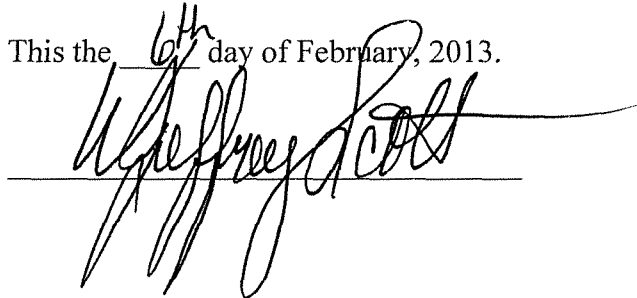 This the 6th day of February, 2013.
W Jeffrey Scott